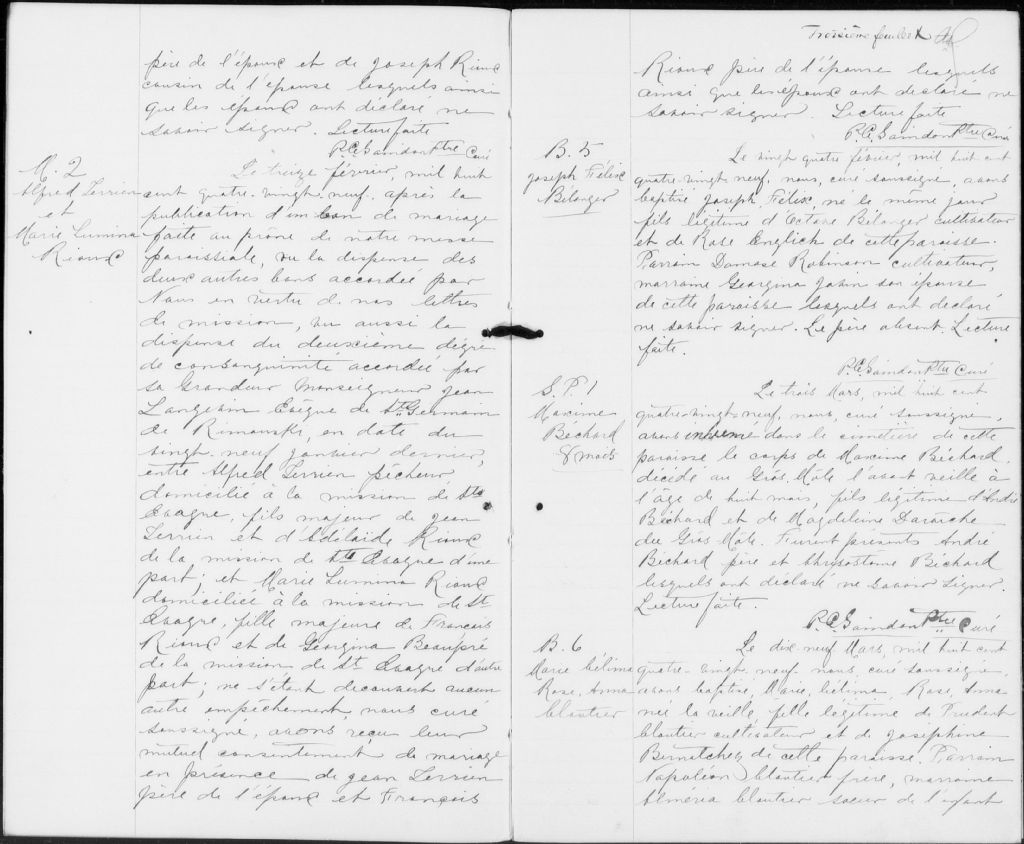 père de l'époux et de Joseph Rioux
cousin de l'épouse lesquels ainsi
que les époux ont déclaré ne
savoir signer. Lecture faite
P.C. Saindon Ptre Curé
M. 2
Alfred Terrien
et
Marie Lumina
Rioux
Le treize février, mil huit
cent quatre-vingt-neuf, après la
publication d'un ban de mariage
faite au prône de notre messe
paroissiale, vu la dispense des
deux autres bans accordée par
Nous en vertu de nos lettres
de mission, vu aussi la
dispense du deuxième dégré
de consanguinité accordée par
sa Grandeur Monseigneur Jean
Langevin Evêque de St. Germain
de Rimouski, en date du
vingt-neuf janvier dernier,
entre Alfred Terrien pêcheur,
domicilié à la mission de Ste
Evagre, fils majeur de Jean
Terrien et d'Adélaïde Rioux
de la mission de Ste Evagre d'une
part; et Marie Lumina Rioux
domiciliée à la mission de St.
Evagre, fille majeure de François
Rioux et de Géorgina Beaupré
de la mission de St. Evagre d'autre
part; ne s'étant découvert aucun
autre empêchement, nous curé
soussigné, avons reçu leur
mutuel consentement de mariage
en présence de Jean Terrien
père de l'époux et François
Troisième feuillet
Rioux père de l'épouse lesquels
ainsi que les époux ont déclaré ne
savoir signer. Lecture faite
P.C. Saindon Ptre Curé
B. 5
Joseph Félix
Bélanger
Le vingt quatre février, mil huit cent
quatre-vingt-neuf, nous, curé soussigné, avons
baptisé Joseph Félix, né le même jour
fils légitime d'Octave Bélanger cultivateur
et de Rose English de cette paroisse.
Parrain Damase Robinson cultivateur,
marraine Georgina Jalin son épouse
de cette paroisse lesquels ont déclaré
ne savoir signer. Le père absent. Lecture
faite.
P.C. Saindon Ptre Curé
S. P. 1
Maxime
Béchard
8 mois
Le trois Mars, mil huit cent
quatre-vingt-neuf, nous, curé soussigné,
avons inhumé dans le cimetière de cette
paroisse le corps de Maxime Béchard,
décédé au Gros Mâle l'avant veille à
l'âge de huit mois, fils légitime d'André
Béchard et de Magdeleine Daraîche
du Gros Mâle. Furent présents André
Béchard père et Chrysostome Béchard
lesquels ont déclaré ne savoir signer.
Lecture faite.
P.C. Saindon Ptre Curé
B. 6
Marie Célima
Rose, Anna
Cloutier
Le dix-neuf Mars, mil huit cent
quatre-vingt-neuf nous, curé soussigné,
avons baptisé, Marie, Célima, Rose, Anna
née la veille, fille légitime de Prudent
Cloutier cultivateur et de Joséphine
Bernatchez de cette paroisse. Parrain
Napoléon Cloutier frère, marraine
Alméria Cloutier soeur de l'enfant